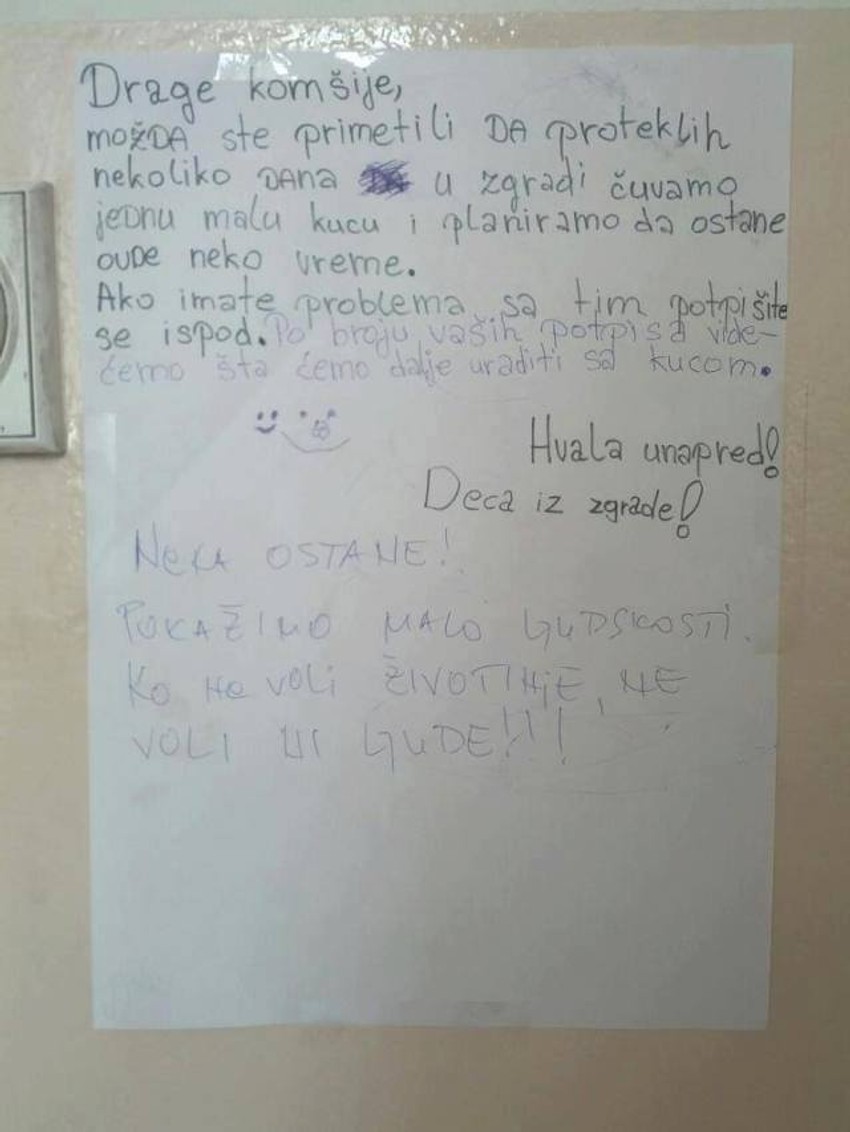 Drage komšije,
možDA ste primetili DA proteklih
nekoliko DANA u zgradi čuvamo
jeDnu malu kucu i planiramo da ostane
ovDe neko vreme.
Ako imate problema sa tim potpišite
se ispod. Po broju vaših potpisa vide-
ćemo šta ćemo dalje uraditi sa kucom.
Hvala unapred!
Deca iz zgrade!
NEKA OSTANE!
POKAŽIMO MALO LJUDSKOSTI.
KO NE VOLI ŽIVOTINJE, NE
VOLI NI LJUDE!!!